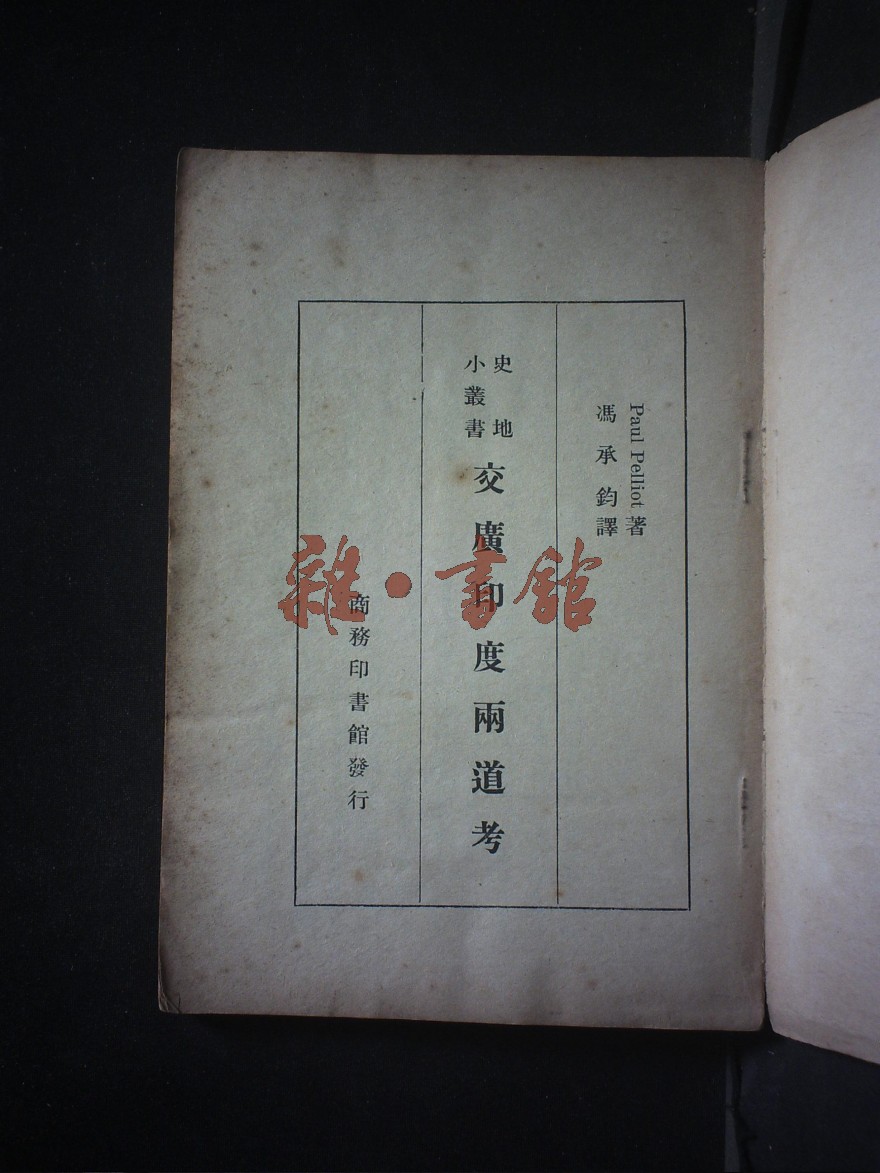 Paul Pelliot著
馮承鈞譯
史地
小叢書
交廣印度兩道考
商務印書館發行
雜·書館